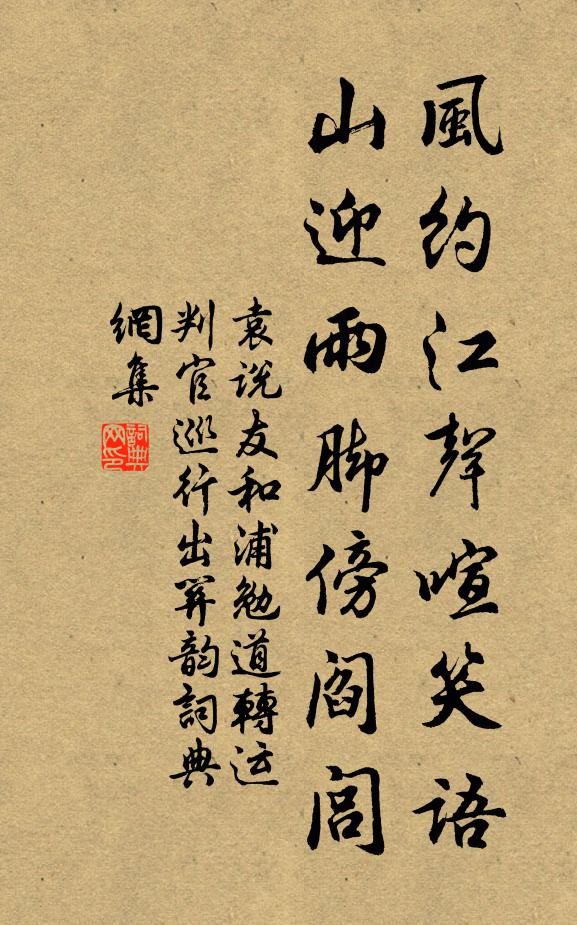 風約江聲喧笑語
山迎雨脚傍閻閭
袁说友和浦勉道轉运
判官巡行出関韵詞典
網集
詞典
网印